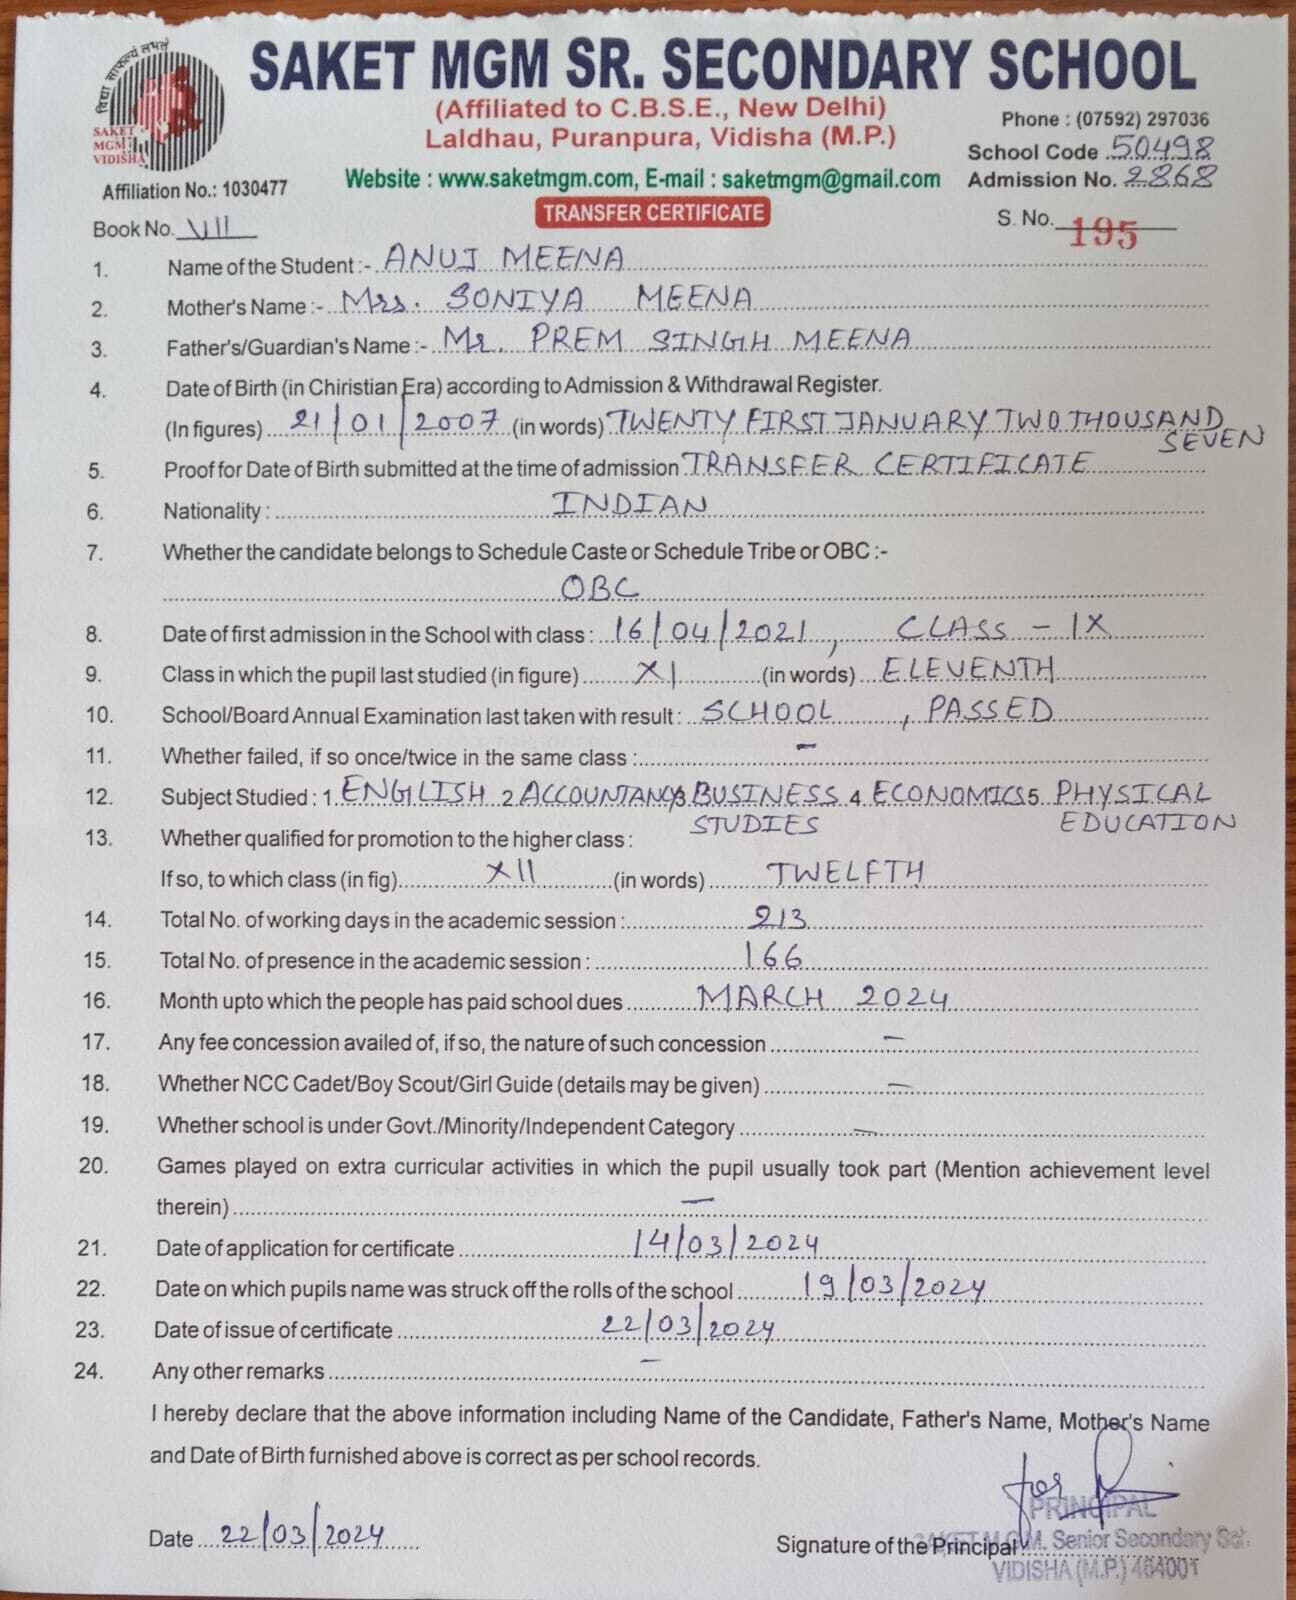 विद्या साफल्यं लभते
SAKET
MGM
VIDISHA
SAKET MGM SR. SECONDARY SCHOOL
(Affiliated to C.B.S.E., New Delhi)
Laldhau, Puranpura, Vidisha (M.P.)
Phone : (07592) 297036
School Code 50498
Affiliation No.: 1030477
Website : www.saketmgm.com, E-mail : saketmgm@gmail.com
Admission No. 2868
TRANSFER CERTIFICATE
Book No. VII
S. No. 195
1. Name of the Student :- ANUJ MEENA
2. Mother's Name :- Mrs. SONIYA MEENA
3. Father's/Guardian's Name :- Mr. PREM SINGH MEENA
4. Date of Birth (in Chiristian Era) according to Admission & Withdrawal Register.
(In figures) 21/01/2007 (in words) TWENTY FIRST JANUARY TWO THOUSAND
SEVEN
5. Proof for Date of Birth submitted at the time of admission TRANSFER CERTIFICATE
6. Nationality : INDIAN
7. Whether the candidate belongs to Schedule Caste or Schedule Tribe or OBC :-
OBC
8. Date of first admission in the School with class : 16/04/2021, CLASS - IX
9. Class in which the pupil last studied (in figure) XI (in words) ELEVENTH
10. School/Board Annual Examination last taken with result : SCHOOL , PASSED
11. Whether failed, if so once/twice in the same class : -
12. Subject Studied : 1. ENGLISH 2 ACCOUNTANCY 3 BUSINESS 4 ECONOMICS 5 PHYSICAL
STUDIES EDUCATION
13. Whether qualified for promotion to the higher class :
If so, to which class (in fig) XII (in words) TWELFTH
14. Total No. of working days in the academic session : 213
15. Total No. of presence in the academic session : 166
16. Month upto which the people has paid school dues MARCH 2024
17. Any fee concession availed of, if so, the nature of such concession -
18. Whether NCC Cadet/Boy Scout/Girl Guide (details may be given) -
19. Whether school is under Govt./Minority/Independent Category -
20. Games played on extra curricular activities in which the pupil usually took part (Mention achievement level
therein) -
21. Date of application for certificate 14/03/2024
22. Date on which pupils name was struck off the rolls of the school 19/03/2024
23. Date of issue of certificate 22/03/2024
24. Any other remarks -
I hereby declare that the above information including Name of the Candidate, Father's Name, Mother's Name
and Date of Birth furnished above is correct as per school records.
for
PRINCIPAL
Date 22/03/2024
Signature of the Principal
SAKET M.G.M. Senior Secondary Sch.
VIDISHA (M.P.) 464001